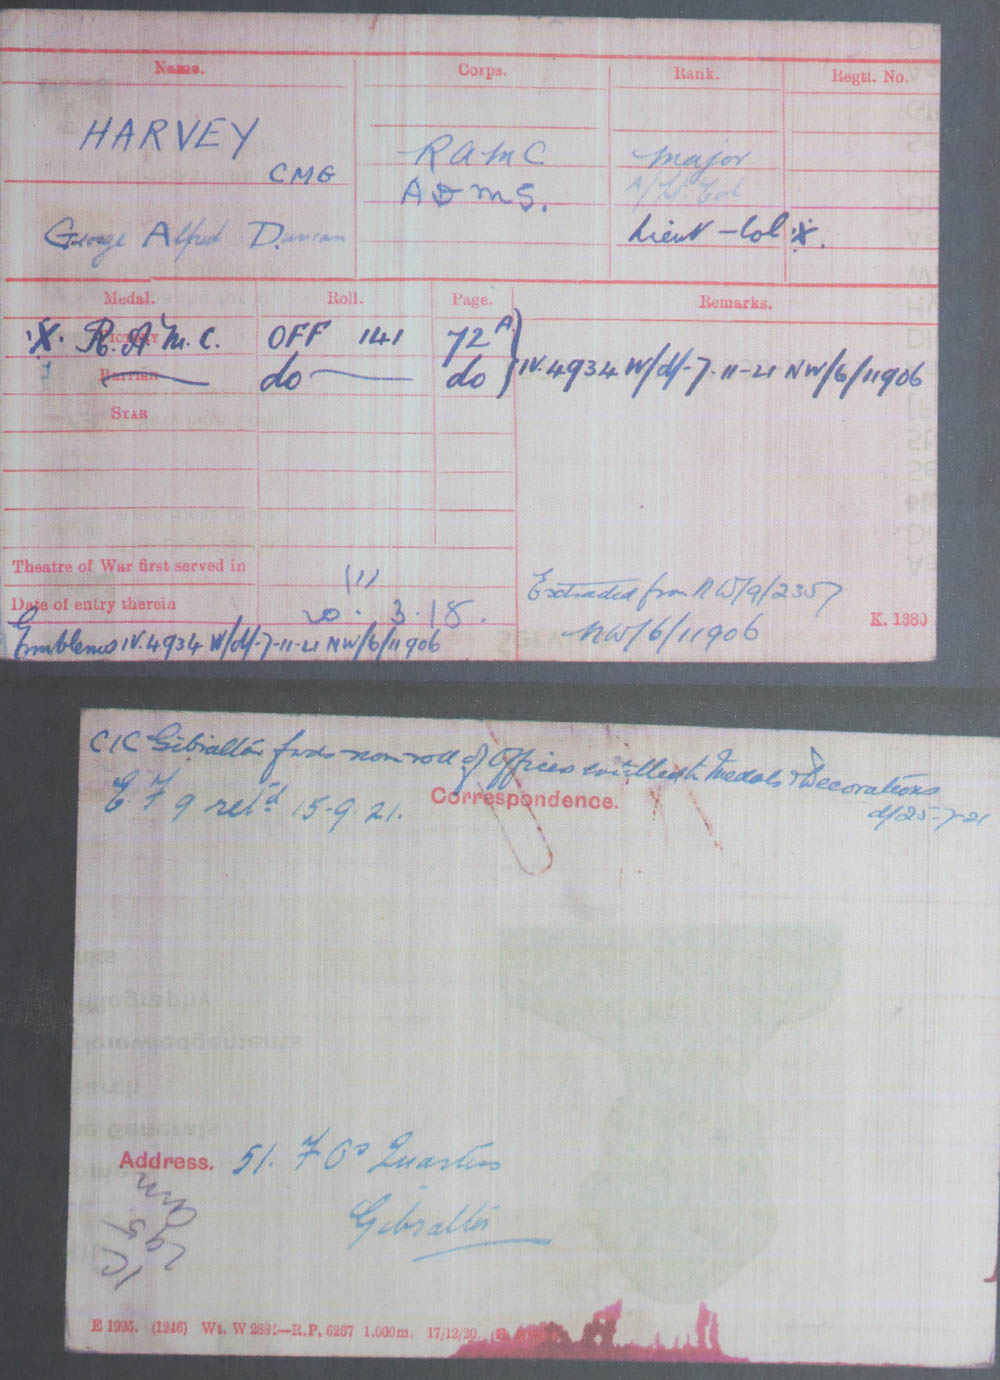 Name. Corps. Rank. Regtl. No.
HARVEY RAMC Major
CMG ADMS. A/Lt. Col
George Alfred Duncan Lieut-Col X.
Medal. Roll. Page. Remarks.
VICTORY
X. R.A.M.C. OFF 141 72A
British do do IV.4934 W/d/-7-11-21 NW/6/11906
STAR
Theatre of War first served in
Date of entry therein 20.3.18. K. 1380
Emblems IV.4934 W/d/-7-11-21 NW/6/11906
Extracted from NW/9/2357
NW/6/11906
CIC Gibraltar fwds nom roll of Officers entitled to Medals & Decorations
d/25-7-21
E F 9 retd 15.9.21.
Correspondence.
Address. 51. F Os Quarters
Gibraltar
E 1995. (1246) Wt. W 2881—R.P. 6267 1,000m. 17/12/20.